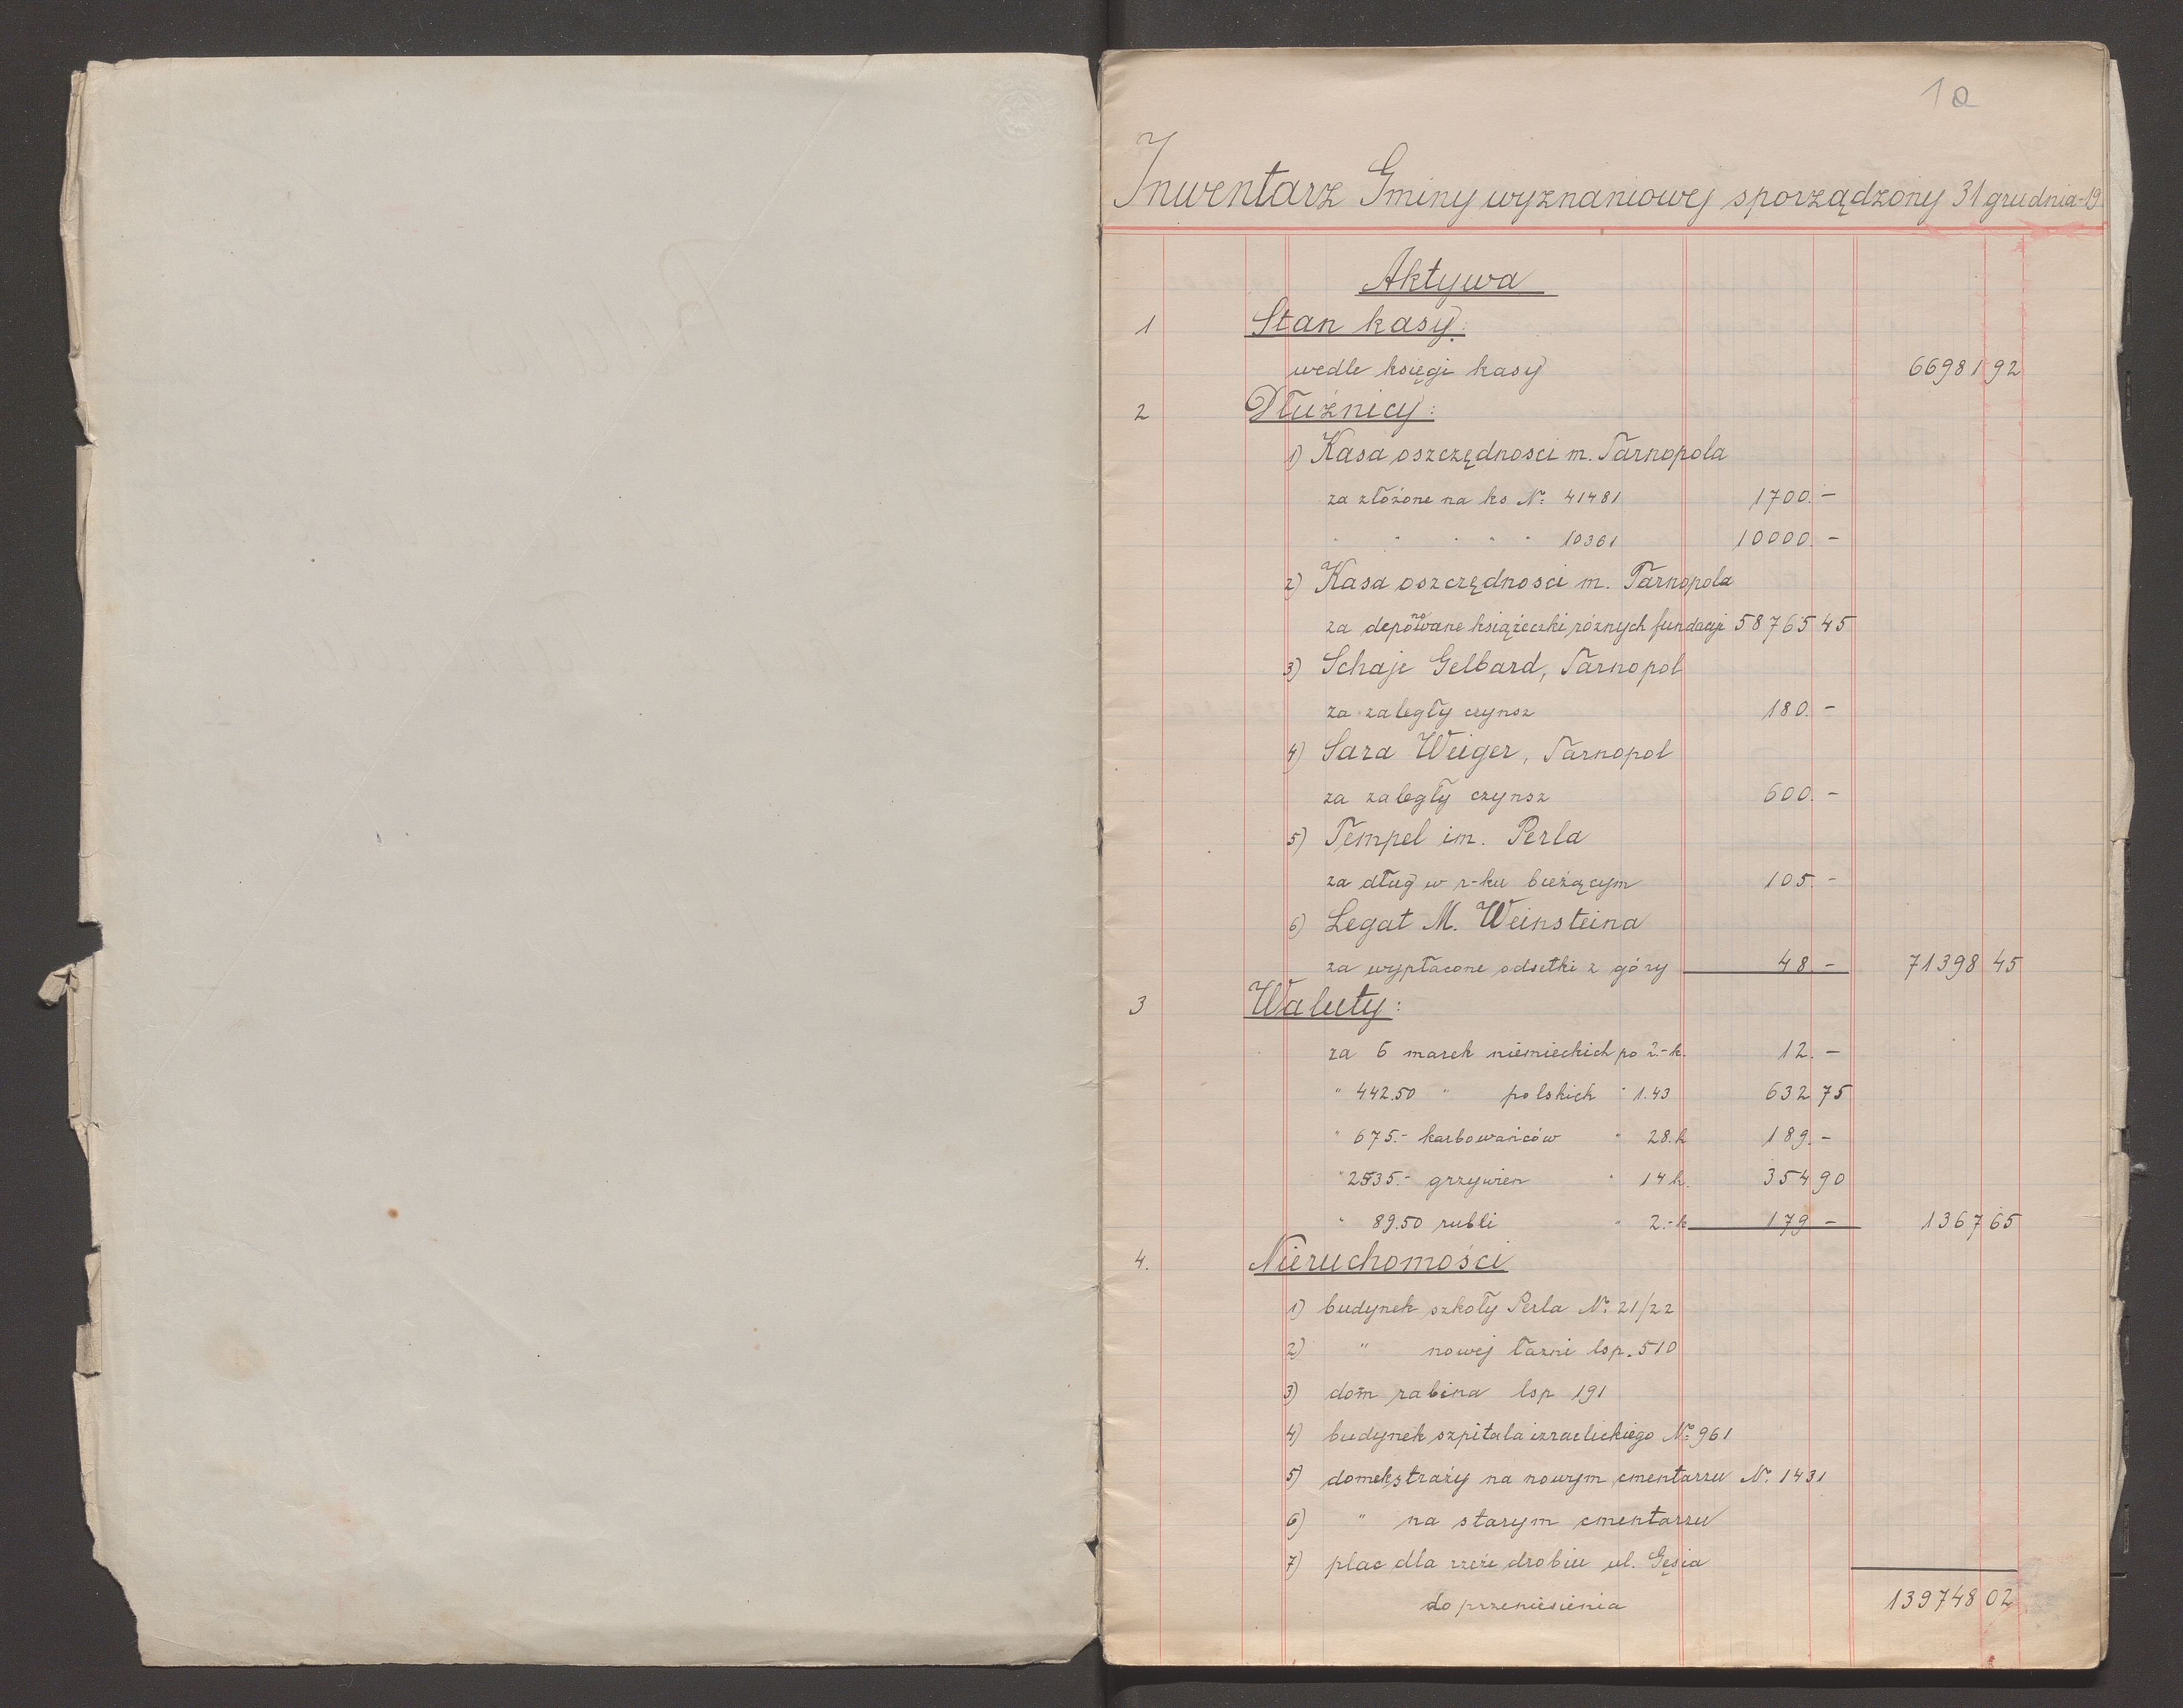 1a
Inwentarz Gminy wyznaniowej sporządzony 31 grudnia 19
Aktywa
1 Stan kasy:
wedle księgi kasy 66981 92
2 Dłużnicy:
1) Kasa oszczędnosci m. Tarnopola
za złożone na ks № 41481 1700.-
" " " " " 10361 10000.-
2) Kasa oszczędnosci m. Tarnopola
za deponowane książeczki różnych fundacyi 58765 45
3) Schaje Gelbard, Tarnopol
za zaległy czynsz 180.-
4) Sara Weiger, Tarnopol
za zaległy czynsz 600.-
5) Tempel im. Perla
za dług w r-ku bieżącym 105.-
6) Legat M. Weinsteina
za wypłacone odsetki z góry 48.- 71398 45
3 Waluty:
za 6 marek niemieckich po 2.-k. 12.-
" 442.50 " polskich " 1.43 632 75
" 675.- karbowańców " 28.h 189.-
" 2535.- grzywien " 14 h. 354 90
" 89.50 rubli " 2.-k 179 - 1367 65
4. Nieruchomości
1) budynek szkoły Perla № 21/22
2) " nowej łazni lsp. 510
3) dom rabina lsp 191
4) budynek szpitala izraelickiego № 961
5) domek straży na nowym cmentarzu № 1431
6) " na starym cmentarzu
7) plac dla rzezi drobiu ul. Gęsia
do przeniesienia 139748 02